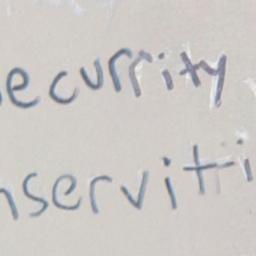 ecurrity
nservitti